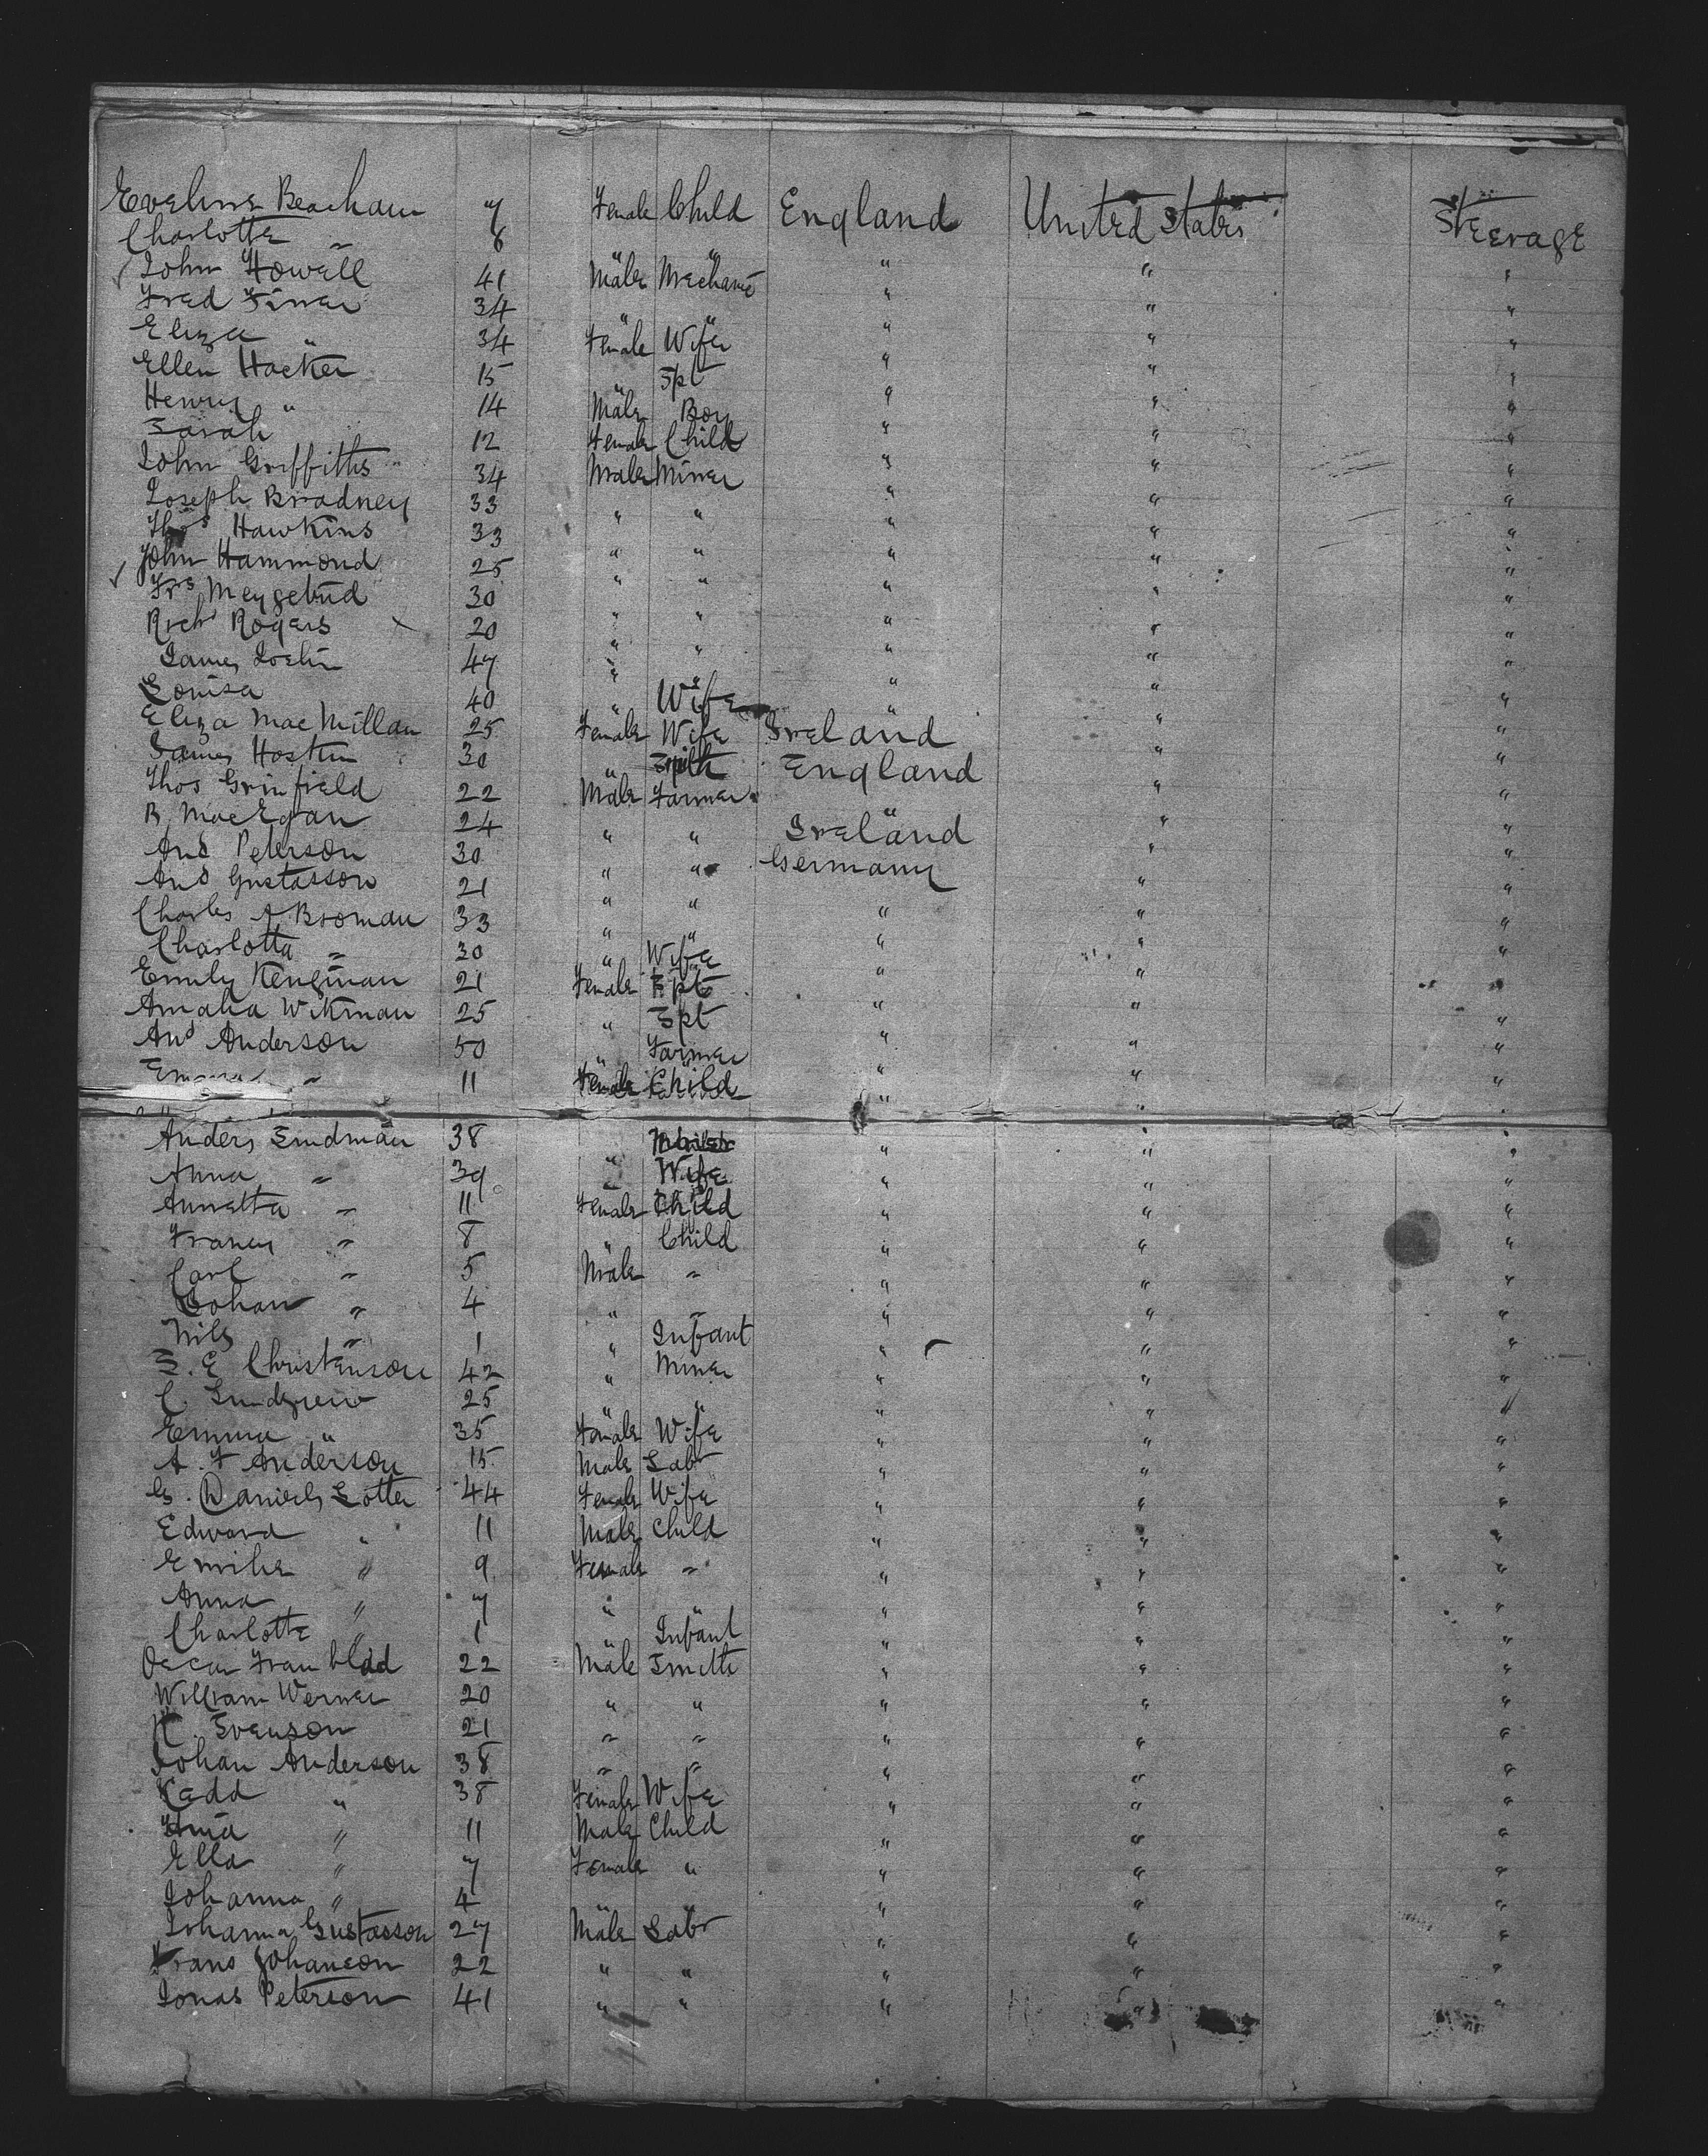 Eveline Beacham 7 Female Child England United States Steerage
Charlotte " 6
John Howell 41 Male Mechanic " " "
Fred Finner 34 " " " " "
Eliza " 34 Female Wife " " "
Ellen Hocken 15 " Spt " " "
Henry " 14 Male Boy " " "
Sarah 12 Female Child " " "
John Griffiths 34 Male Miner " " "
Joseph Bradney 33 " " " " "
Thos Hawkins 33 " " " " "
John Hammond 25 " " " " "
Frs 30 " " " " "
Richd Rogers 20 " " " " "
James Joslin 47 " " " " "
Louisa 40 " Wife " " "
Eliza MacMillan 25 Female Wife Ireland " "
James Hosken 30 " England " "
Thos Grinfield 22 Male Farmer " "
B. MacEgan 24 " " Ireland " "
And Peterson 30 " " Germany " "
And Gustasson 21 " " " "
Charles A Broman 33 " " " " "
Charlotta " 30 " Wife " " "
Emily Kengman 21 Female Spt " " "
Amalia Wikman 25 " Spt " " "
And Anderson 50 " Farmer " " "
Emma " 11 Female Child " " "
Anders Sundman 38 " " " "
Anna " 39 " Wife " " "
Annetta " 11 Female Child " " "
Francy " 8 " Child " " "
Carl " 5 Male " " " "
Johan " 4 " " " " "
Nils " 1 " Infant " " "
S. E Christenson 42 " Miner " " "
C. Lundgren 25 " " " " "
Emma " 35 Female Wife " " "
A. F Anderson 15 Male Labr " " "
G. Daniels Lotta 44 Female Wife " " "
Edward " 11 Male Child " " "
Emilie " 9 Female " " " "
Anna " 7 " " " " "
Charlotte " 1 Infant " " "
Oscar Franblad 22 Male Smith " " "
William Werner 20 " " " " "
K. Svenson 21 " " " " "
Johan Anderson 38 " " " " "
Kadd " 38 Female Wife " " "
" 11 Male Child " " "
Ella " 7 Female " " " "
Johanna " 4 " " " " "
Johanna Gustasson 27 Male Labr " " "
Frans Johanson 22 " " " " "
Jonas Peterson 41 " " " " "